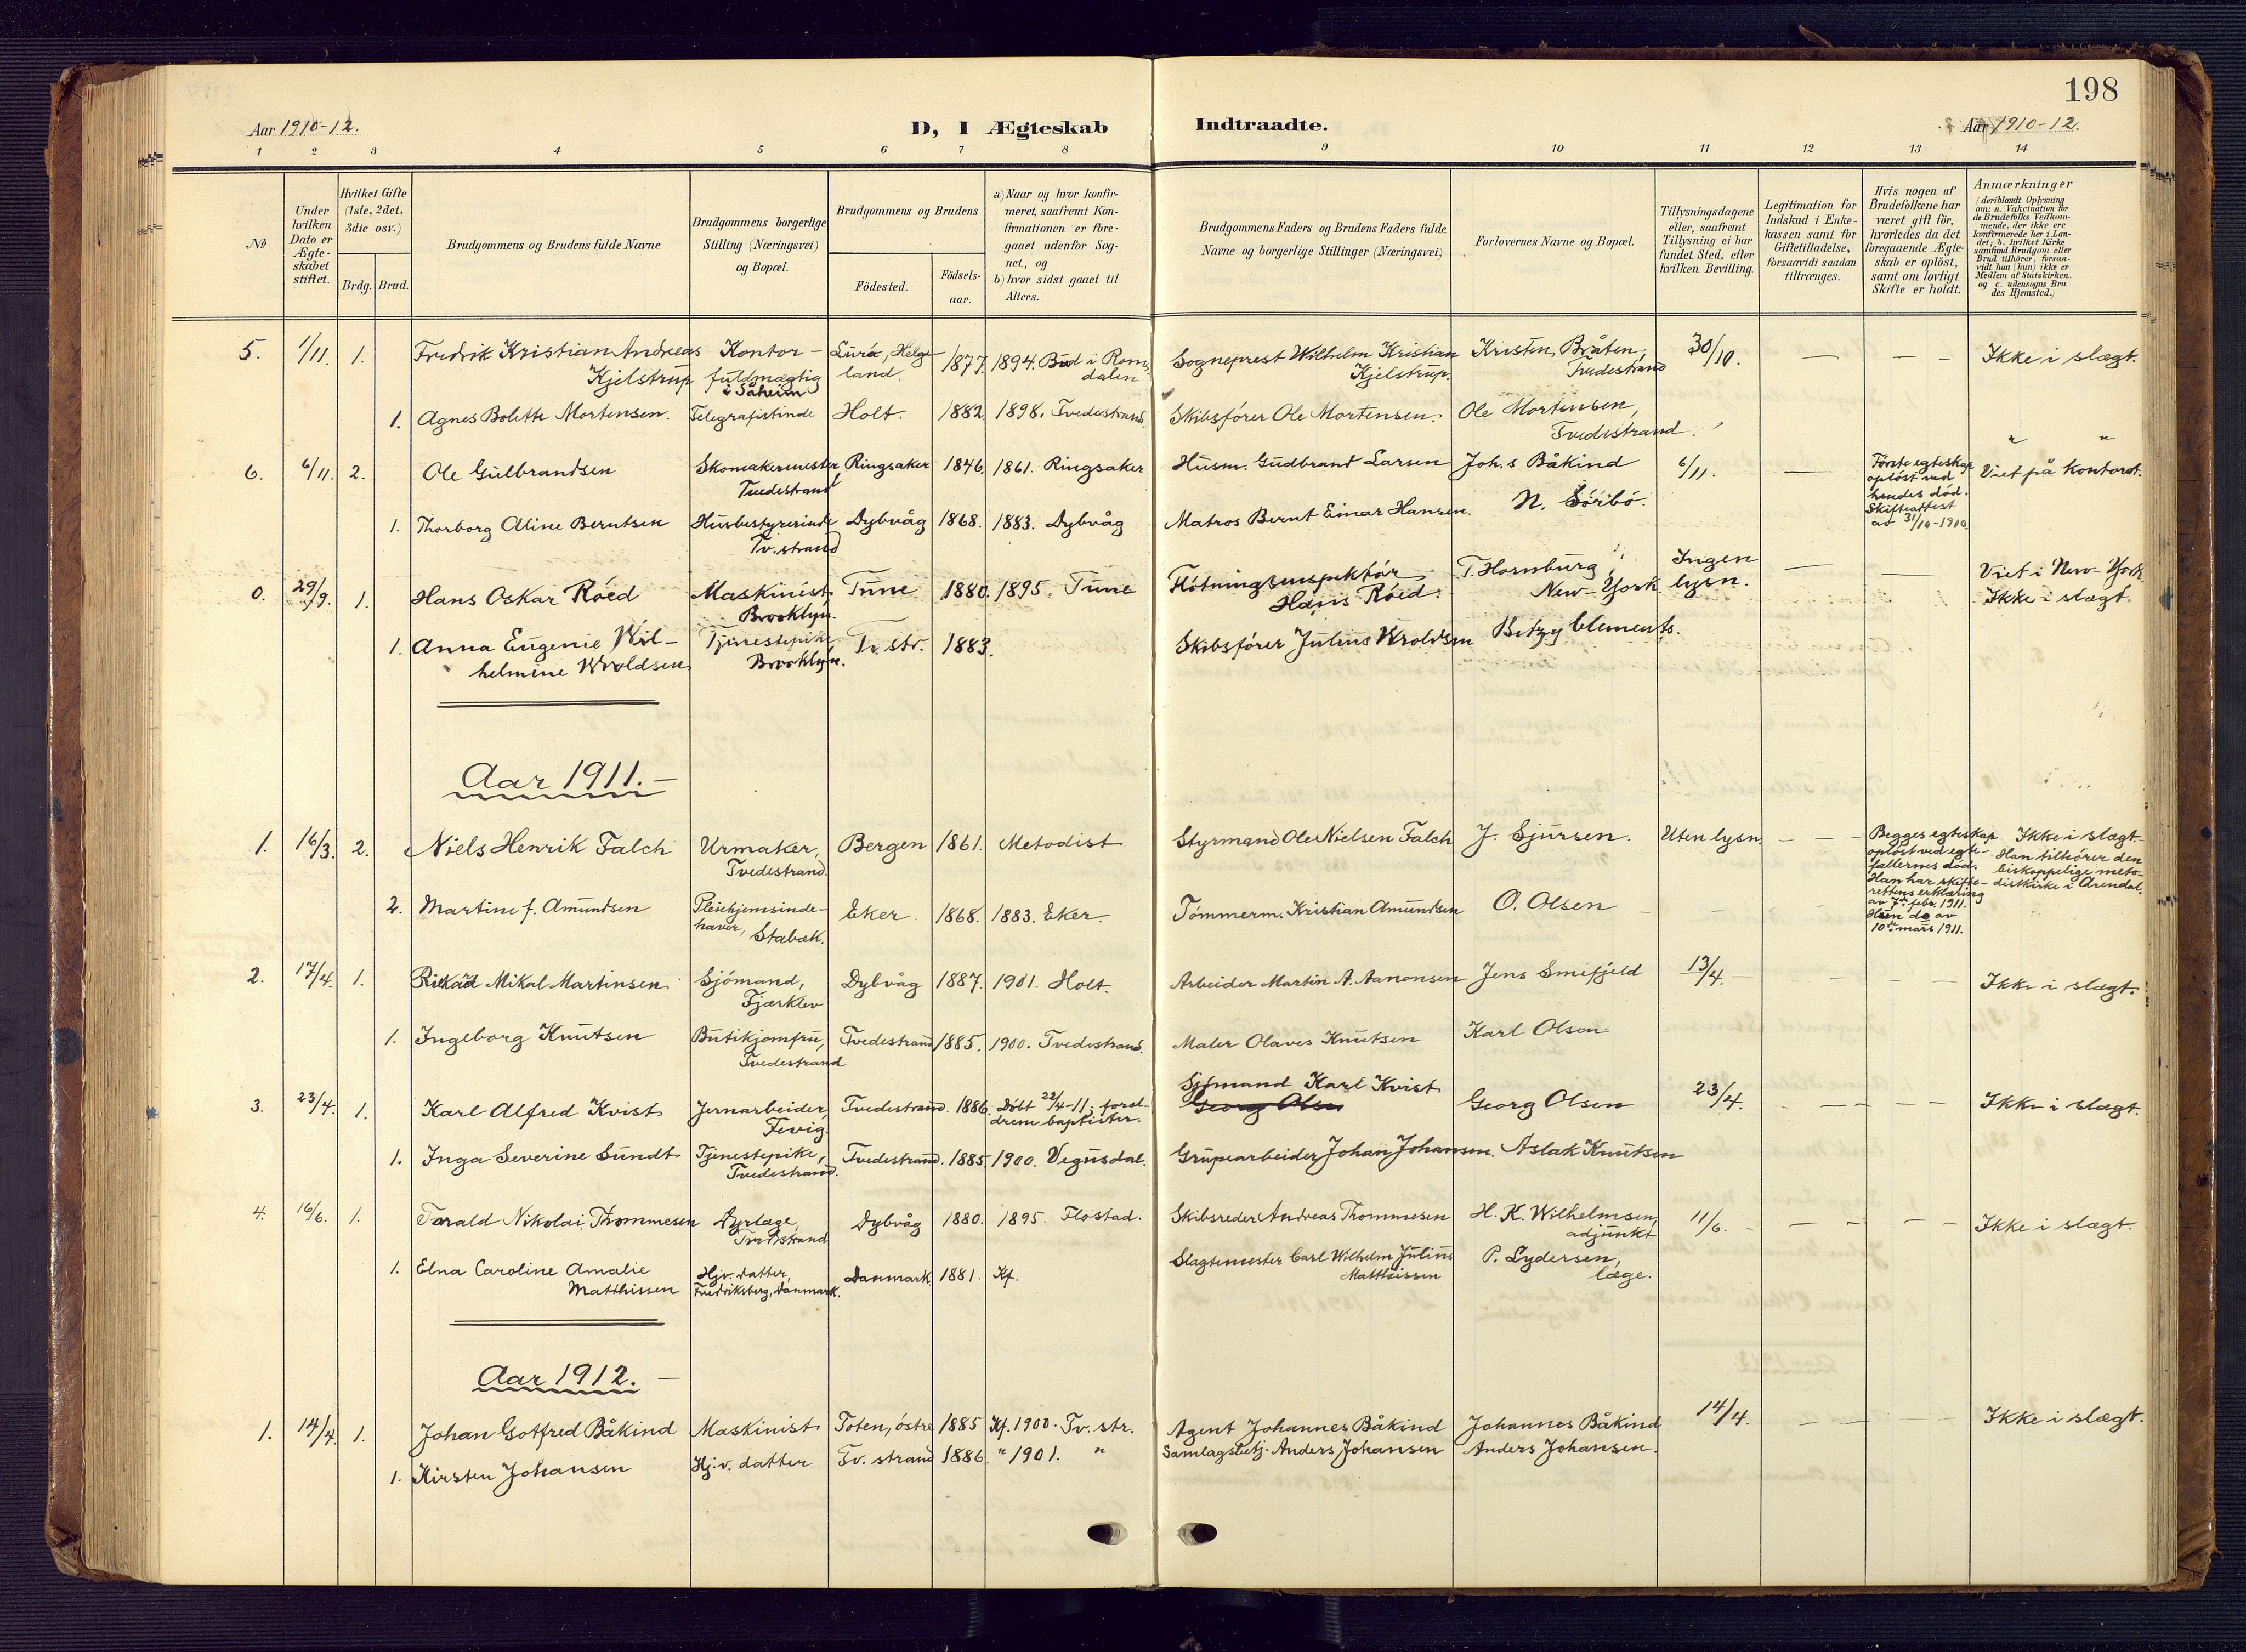 198
Aar 1910-12.
D, I Ægteskab
Indtraadte.
Aar 1910-12.
1 2 3 4 5 6 7 8 9 10 11 12 13 14
No
Under hvilken Dato er Ægteskabet stiftet.
Hvilket Gifte (1ste, 2det, 3die osv.)
Brdg. Brud.
Brudgommens og Brudens fulde Navne
Brudgommens borgerlige Stilling (Næringsvei) og Bopæl.
Brudgommens og Brudens
Födested.
Födsels-aar.
a) Naar og hvor konfirmeret, saafremt Konfirmationen er foregaaet udenfor Sognet, og
b) hvor sidst gaaet til Alters.
Brudgommens Faders og Brudens Faders fulde Navne og borgerlige Stillinger (Næringsvei)
Forlovernes Navne og Bopæl.
Tillysningsdagene eller, saafremt Tillysning ei har fundet Sted, efter hvilken Bevilling.
Legitimation for Indskud i Enkekassen samt for Giftetilladelse, forsaavidt saadan tiltrænges.
Hvis nogen af Brudefolkene har været gift för, hvorledes da det foregaaende Ægteskab er oplöst, samt om lovligt Skifte er holdt.
Anmærkninger (deriblandt Oplysning om: a. Vakcination for de Brudefolks Vedkommende, der ikke ere konfirmerede her i Landet; b. hvilket Kirkesamfund Brudgom eller Brud tilhörer, forsaavidt han (hun) ikke er Medlem af Statskirken, og c. udensogns Brudes Hjemsted.)
5. 1/11. 1. Fredrik Kristian Andreas Kjelstrup Kontorfuldmægtig i Såheim Lurö, Helgeland. 1877. 1894. Bud i Romsdalen Sogneprest Wilhelm Kristian Kjelstrup. Kristen Bråten, Tvedestrand 30/10. — — — Ikke i slægt.
1. Agnes Bolette Mortensen. Telegrafistinde Holt. 1882. 1898. Tvedestrand. Skibsfører Ole Mortensen. Ole Mortensen, Tvedestrand.
6. 6/11. 2. Ole Gulbrandsen Skomakermester Tvedestrand Ringsaker 1846. 1861. Ringsaker Husm. Gudbrand Larsen Joh.s Båkind 6/11. — Første egteskap opløst ved hendes død. Skifteattest av 31/10-1910. " " Viet på kontoret.
1. Thorborg Aline Berntsen Husbestyrerinde Tv.strand Dybvåg 1868. 1883. Dybvåg Matros Bernt Einar Hansen. N. Sörbö.
0. 29/9. 1. Hans Oskar Röed Maskinist Brooklyn. Tune 1880. 1895. Tune Flötningsinspektör Hans Röed. T. Hornburg, New-York Ingen lysn. — — Viet i New-York Ikke i slægt.
1. Anna Eugenie Wilhelmine Wroldsen Tjenestepike Brooklyn. Tv. str. 1883. Skibsfører Julius Wroldsen Betzy Clements.
Aar 1911.—
1. 16/3. 2. Niels Henrik Falch Urmaker, Tvedestrand. Bergen 1861. Metodist Styrmand Ole Nielsen Falch J. Sjursen. Uten lysn. — — Begges egteskap opløst ved egtefællernes død. Han har skifterettens erklæring av 7de febr. 1911. Hun do av 10de mars 1911. Ikke i slægt.- Han tilhører den biskoppelige metodistkirke i Arendal.
2. Martine f. Amundsen Pleiehjemsindehaver, Stabæk. Eker. 1868. 1883. Eker. Tømmerm. Kristian Amundsen O. Olsen
2. 17/4. 1. Rikard Mikal Martinsen Sjömand, Fjærklev Dybvåg 1887. 1901. Holt. Arbeider Martin A. Aanonsen Jens Smifjeld 13/4. — — Ikke i slægt.
1. Ingeborg Knutsen Butikjomfru, Tvedestrand Tvedestrand 1885. 1900. Tvedestrand. Maler Olaves Knutsen Karl Olsen
3. 23/4. 1. Karl Alfred Kvist Jernarbeider, Fevig. Tvedestrand. 1886. Döbt 22/4-11; forældrene baptister. Sjömand Karl Kvist Georg Olsen Georg Olsen 23/4. — — — Ikke i slægt.
1. Inga Severine Sundt Tjenestepike, Tvedestrand. Tvedestrand. 1885. 1900. Vegusdal. Grubearbeider Johan Johansen. Aslak Knutsen
4. 16/6. 1. Tarald Nikolai Thommesen Dyrlæge, Tvedestrand Dybvåg 1880. 1895. Flostad. Skibsreder Andreas Thommesen H. K. Wilhelmsen, adjunkt 11/6. — — — Ikke i slægt.
1. Elna Caroline Amalie Matthissen Hjv. datter, Fredriksberg, Danmark. Danmark 1881. Kf. Slagtemester Carl Wilhelm Julius Matthissen P. Lydersen, læge.
Aar 1912.—
1. 14/4. 1. Johan Gotfred Båkind Maskinist Toten, östre 1885 Kf. 1900. Tv. str. Agent Johannes Båkind Johannes Båkind 14/4. — — — Ikke i slægt.
1. Kirsten Johansen Hj.v. datter Tv. strand 1886. " 1901. " Samlagsbetj. Anders Johansen Anders Johansen.